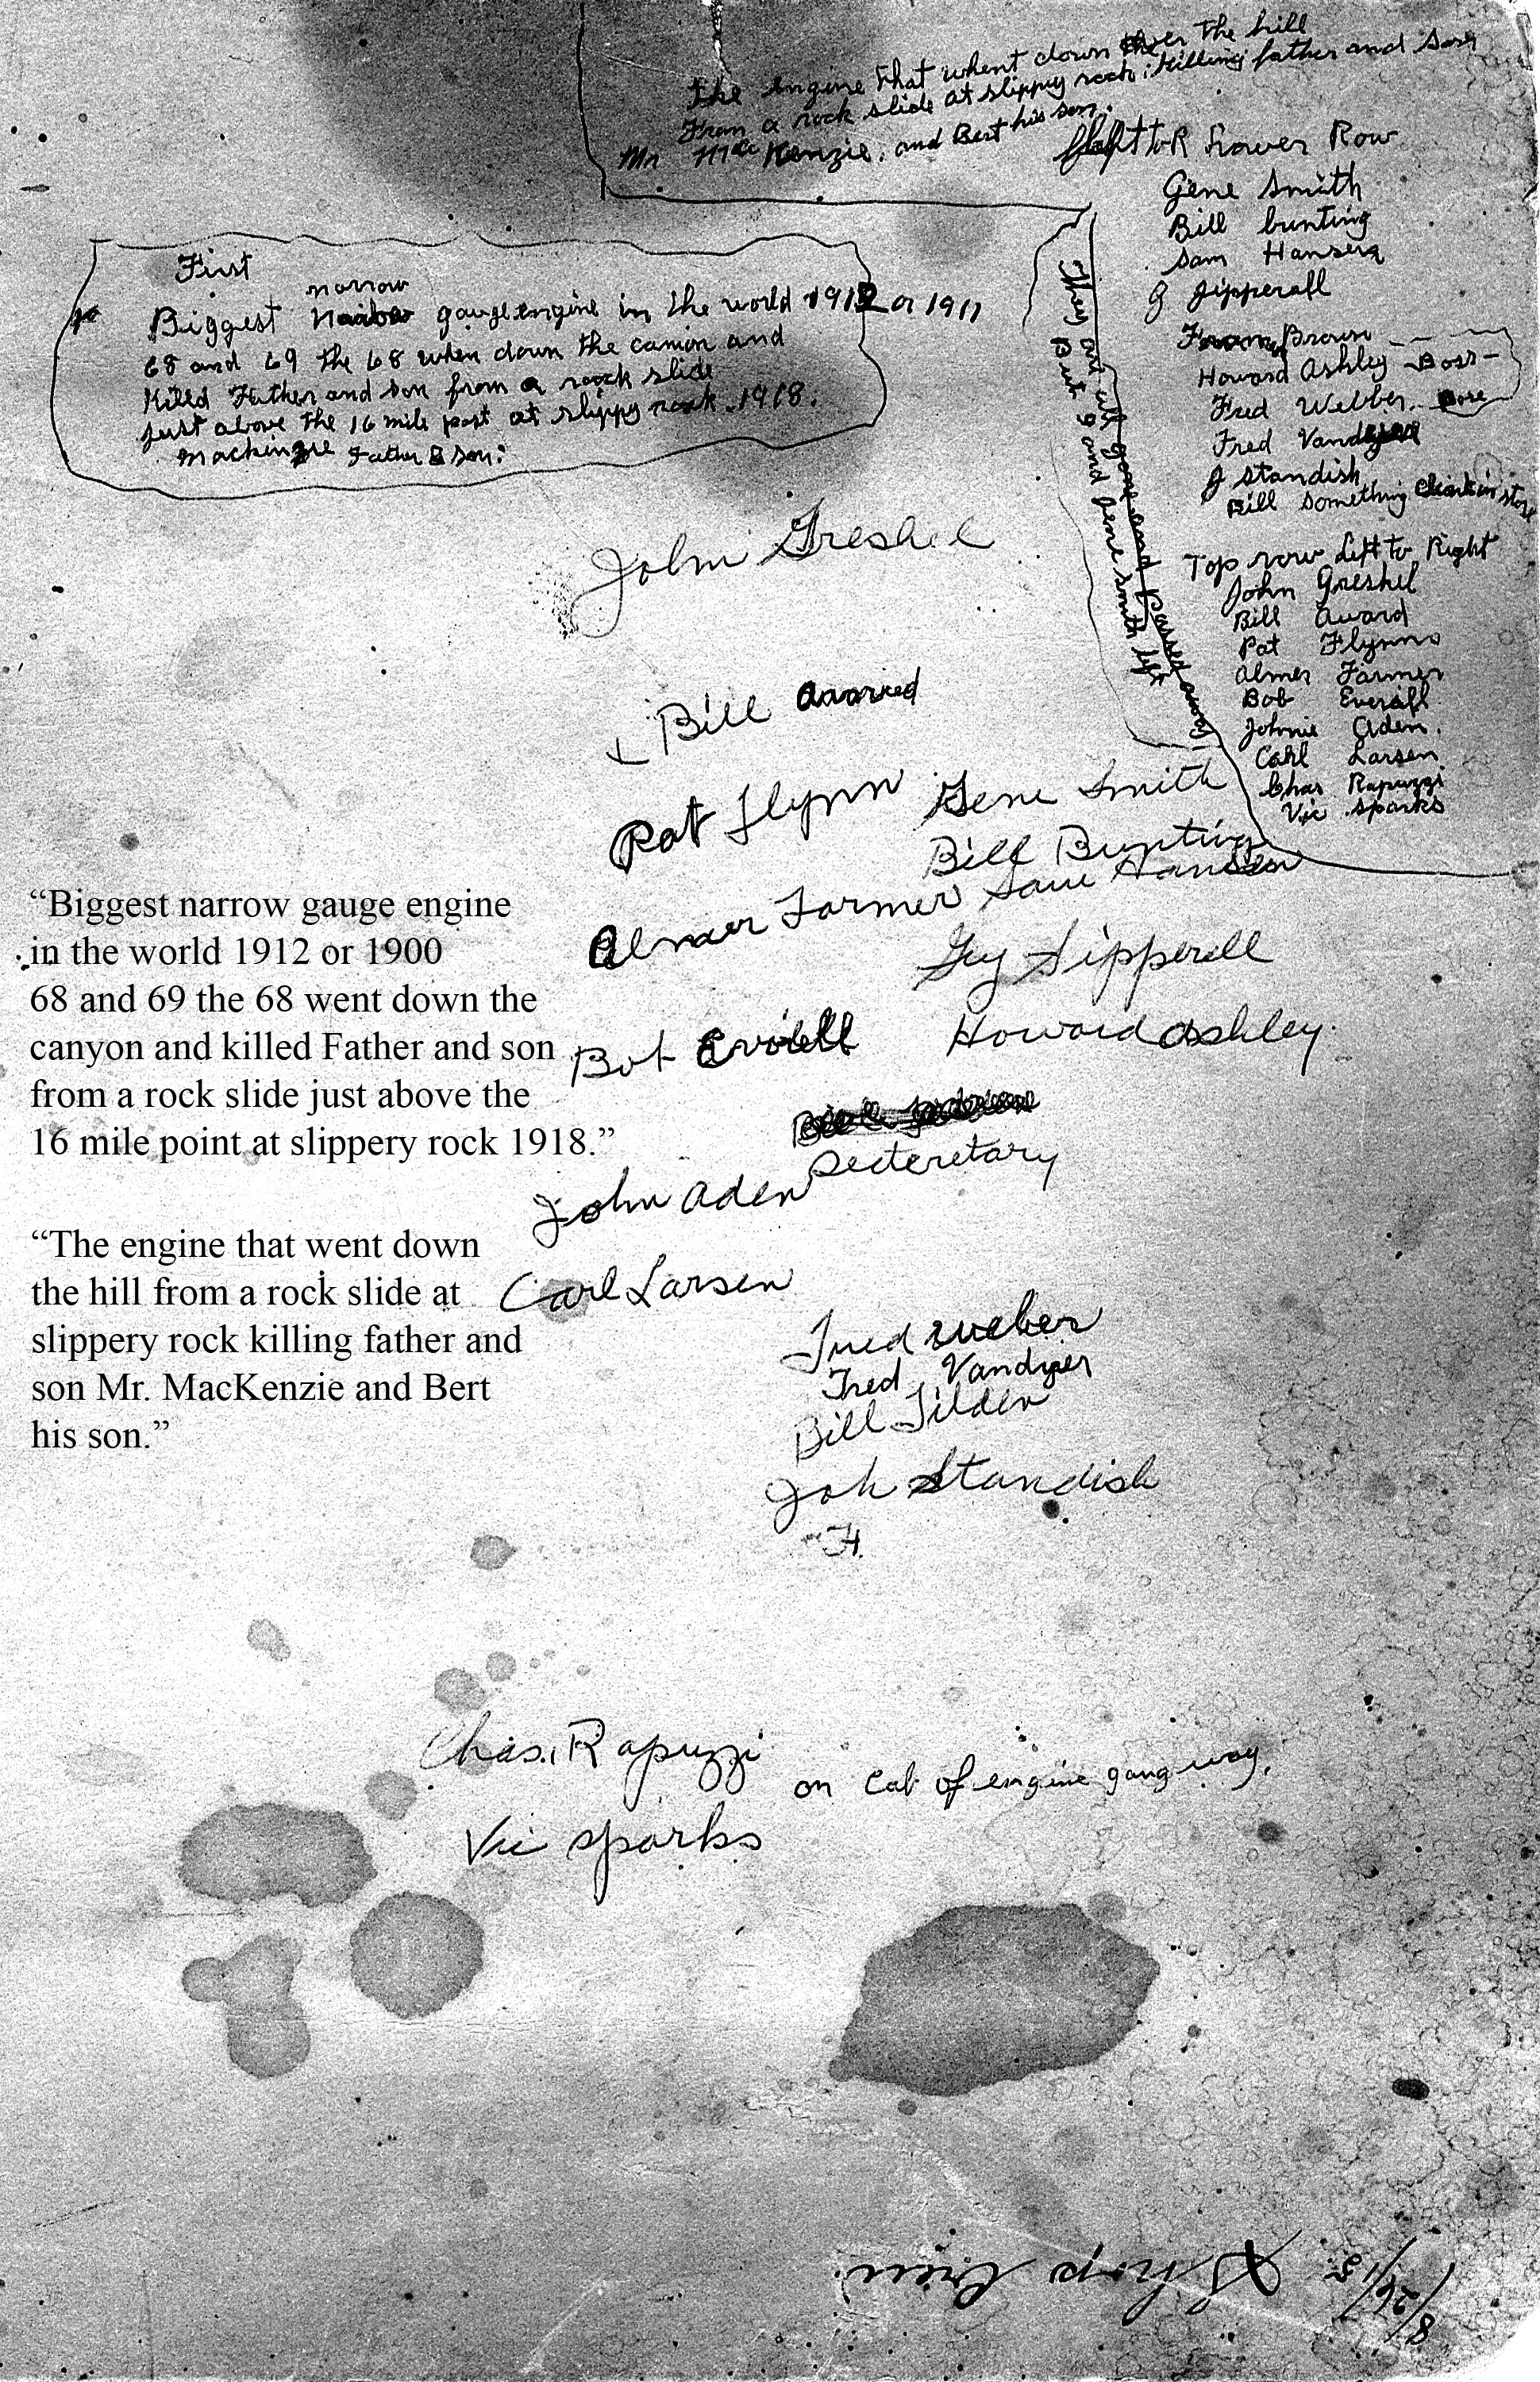 The engine that whent down over the hill
From a rock slide at slippry rock killing father and son
Mr MacKenzie, and Bert his son.
Left to R Lower Row
Gene Smith
Bill bunting
Sam Hansen
G Sipperall
Brown
Howard Ashley - Boss -
Fred Webber
Fred
J Standish
Bill Something Clerk in store
Top row Left to Right
John Greshel
Bill Award
Pat Flynn
Almer Farmer
Bob Everall
Johnie Aden.
Cahl Larsen
Chas Rapuzzi
Vic Sparks
They are all gone and passed away
But I and Gene Smith left
First
narrow
Biggest gauge engine in the world 1912 or 1911
68 and 69 the 68 when down the canion and
Killed Father and son from a rock slide
just above the 16 mile post at slippy rock. 1918.
Mackinzie Father & son.
John Greshel
Bill
Pat Flynn
Gene Smith
Bill Bunting
Almer Farmer
Sam Hansen
Guy Sipperell
Bob
Howard Ashley
Secteretary
John Aden
Carl Larsen
Fred Weber
Fred Vandyier
Bill Tilden
Joh Standish
H.
Chas. Rapuzzi
on Cab of engine gang way.
Vic Sparks
“Biggest narrow gauge engine
in the world 1912 or 1900
68 and 69 the 68 went down the
canyon and killed Father and son
from a rock slide just above the
16 mile point at slippery rock 1918.”
“The engine that went down
the hill from a rock slide at
slippery rock killing father and
son Mr. MacKenzie and Bert
his son.”
8/26/15 Shop Crew